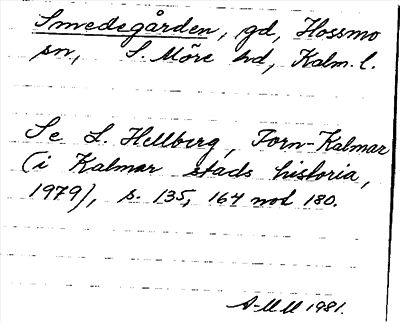 Smedegården, gd, Hossmo
sn, S. Möre hd, Kalm. l.
Se L. Hellberg, Forn-Kalmar
(i Kalmar stads historia,
1979), s. 135, 164 not 180.
A-MM 1981.